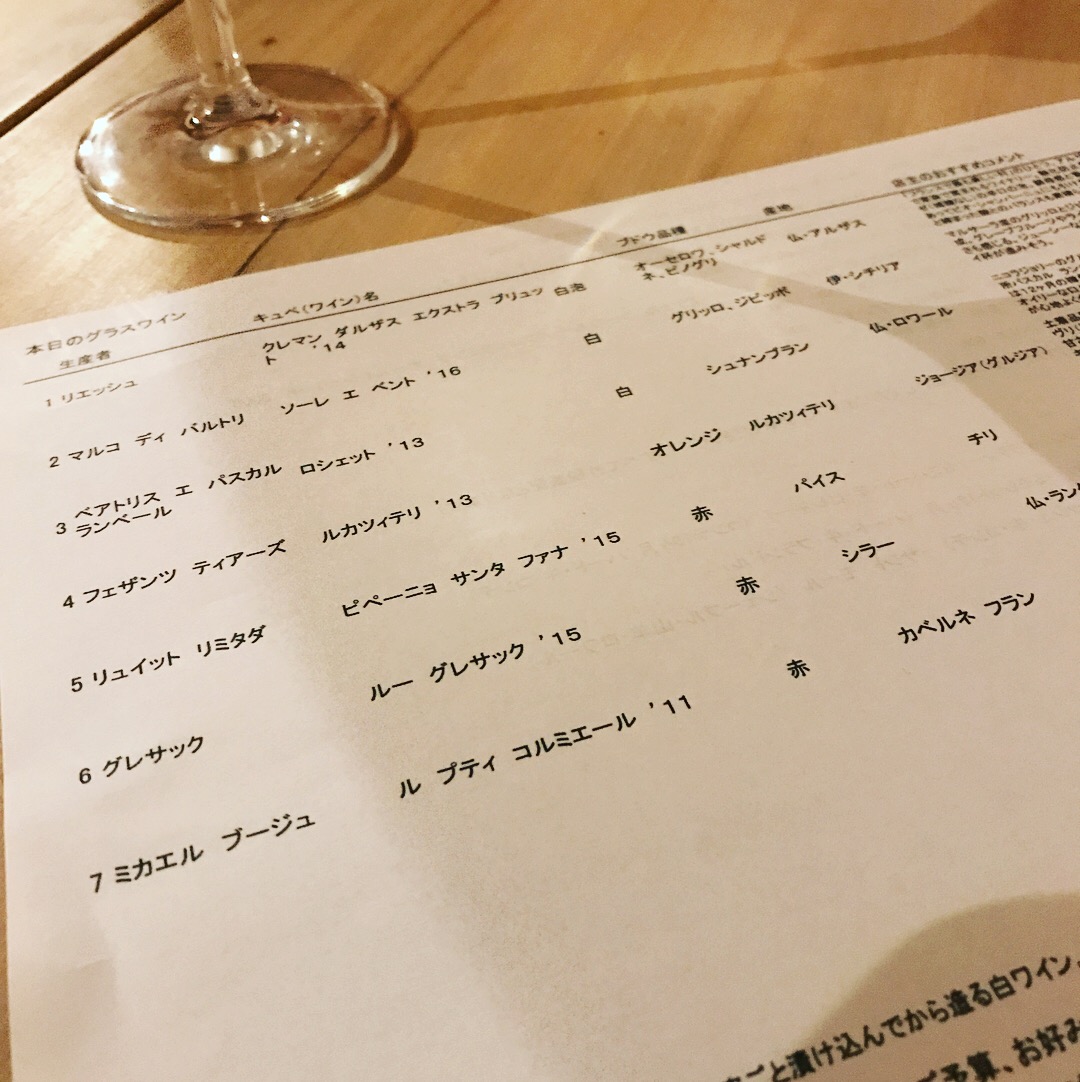 店主のおすすめコメント
本日のグラスワイン
生産者 キュベ(ワイン)名 ブドウ品種 産地
1 リエッシュ クレマン ダルザス エクストラ ブリュッ 白泡 オーセロワ、シャルド 仏・アルザス
ト '14 ネ、ピノグリ
2 マルコ ディ バルトリ ソーレ エ ベント '16 白 グリッロ、ジビッボ 伊・シチリア
3 ベアトリス エ パスカル ロシェット '13 白 シュナンブラン 仏・ロワール
ランベール
4 フェザンツ ティアーズ ルカツィテリ '13 オレンジ ルカツィテリ ジョージア(グルジア)
5 リュイット リミタダ ピペーニョ サンタ ファナ '15 赤 パイス チリ
6 グレサック ルー グレサック '15 赤 シラー 仏・ラング
7 ミカエル ブージュ ル プティ コルミエール '11 赤 カベルネ フラン
ごと漬け込んでから造る白ワイン。
予算、お好み